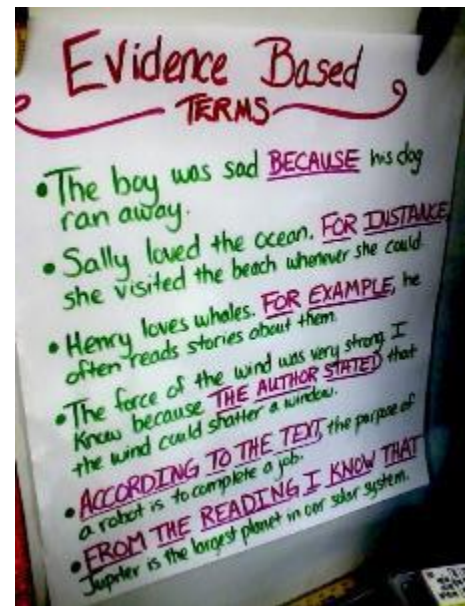 Evidence Based
TERMS
• The boy was sad BECAUSE his dog
ran away.
• Sally loved the ocean. FOR INSTANCE,
she visited the beach whenever she could.
• Henry loves whales. FOR EXAMPLE, he
often reads stories about them.
• The force of the wind was very strong. I
know because THE AUTHOR STATED that
the wind could shatter a window.
• ACCORDING TO THE TEXT, the purpose of
a robot is to complete a job.
• FROM THE READING I KNOW THAT
Jupiter is the largest planet in our solar system.